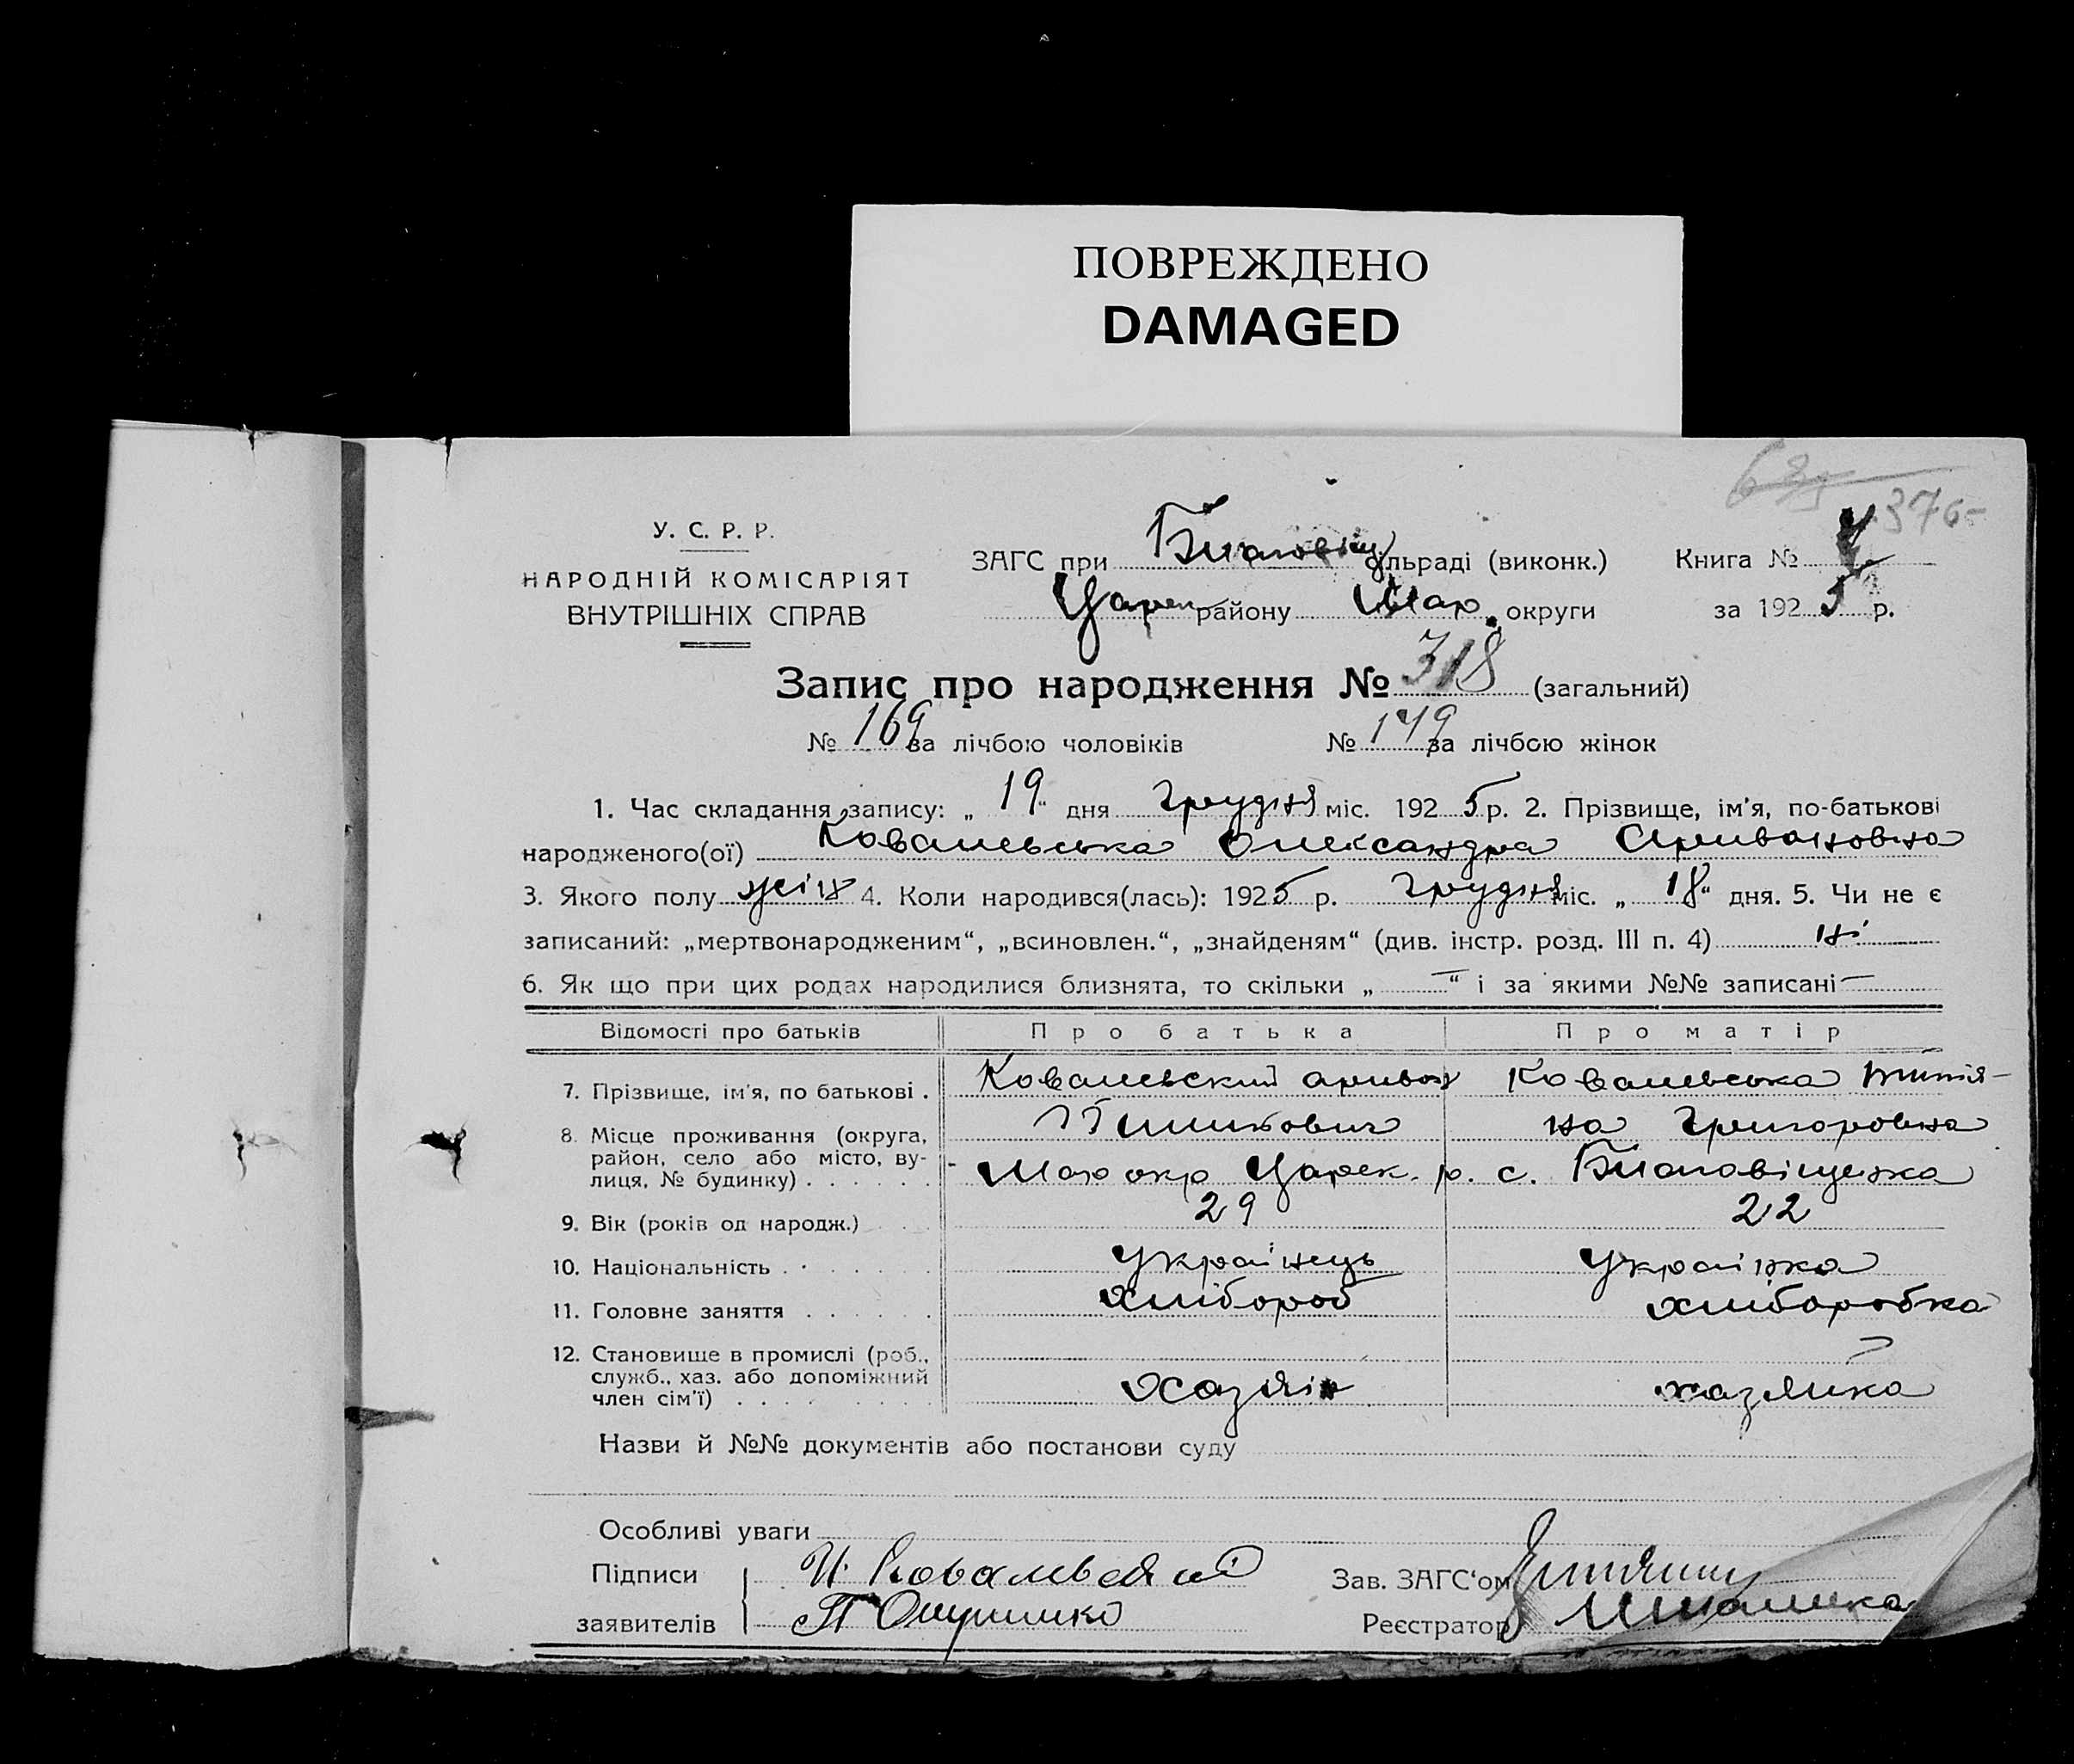 ПОВРЕЖДЕНО
DAMAGED
376
У. С. Р. Р.
НАРОДНІЙ КОМІСАРІЯТ
ВНУТРІШНІХ СПРАВ
ЗАГС при Благовіщ сільраді (виконк.) Книга №
Царек району Мар. округи за 1925 р.
Запис про народження № 318 (загальний)
№ 169 за лічбою чоловіків № 149 за лічбою жінок
1. Час складання запису: „19“ дня грудня міс. 1925 р. 2. Прізвище, ім'я, по-батькові
народженого(ої) Ковалевська Олександра
3. Якого полу жін 4. Коли народився(лась): 1925 р. грудня міс. „18“ дня. 5. Чи не є
записаний: „мертвонародженим“, „всиновлен.“, „знайденям“ (див. інстр. розд. III п. 4) ні
6. Як що при цих родах народилися близнята, то скільки „—“ і за якими №№ записані —
Відомості про батьків Про батька Про матір
7. Прізвище, ім'я, по батькові . Ковалевский Ковалевська
на Григоровна
8. Місце проживання (округа, район, село або місто, ву-
лиця, № будинку) . . . . . . Мар окр Царек. р. с. Благовіщенка
9. Вік (років од народж.) . . 29 22
10. Національність . . . . . . Українець Українка
11. Головне заняття . . . . . . Хлібороб хліборобка
12. Становище в промислі (роб.,
служб., хаз. або допоміжний
член сім'ї) . . . . . . . . Хазяїн хазяйка
Назви й №№ документів або постанови суду
Особливі уваги
Підписи И. Ковалевский Зав. ЗАГС'ом
заявителів П Реєстратор